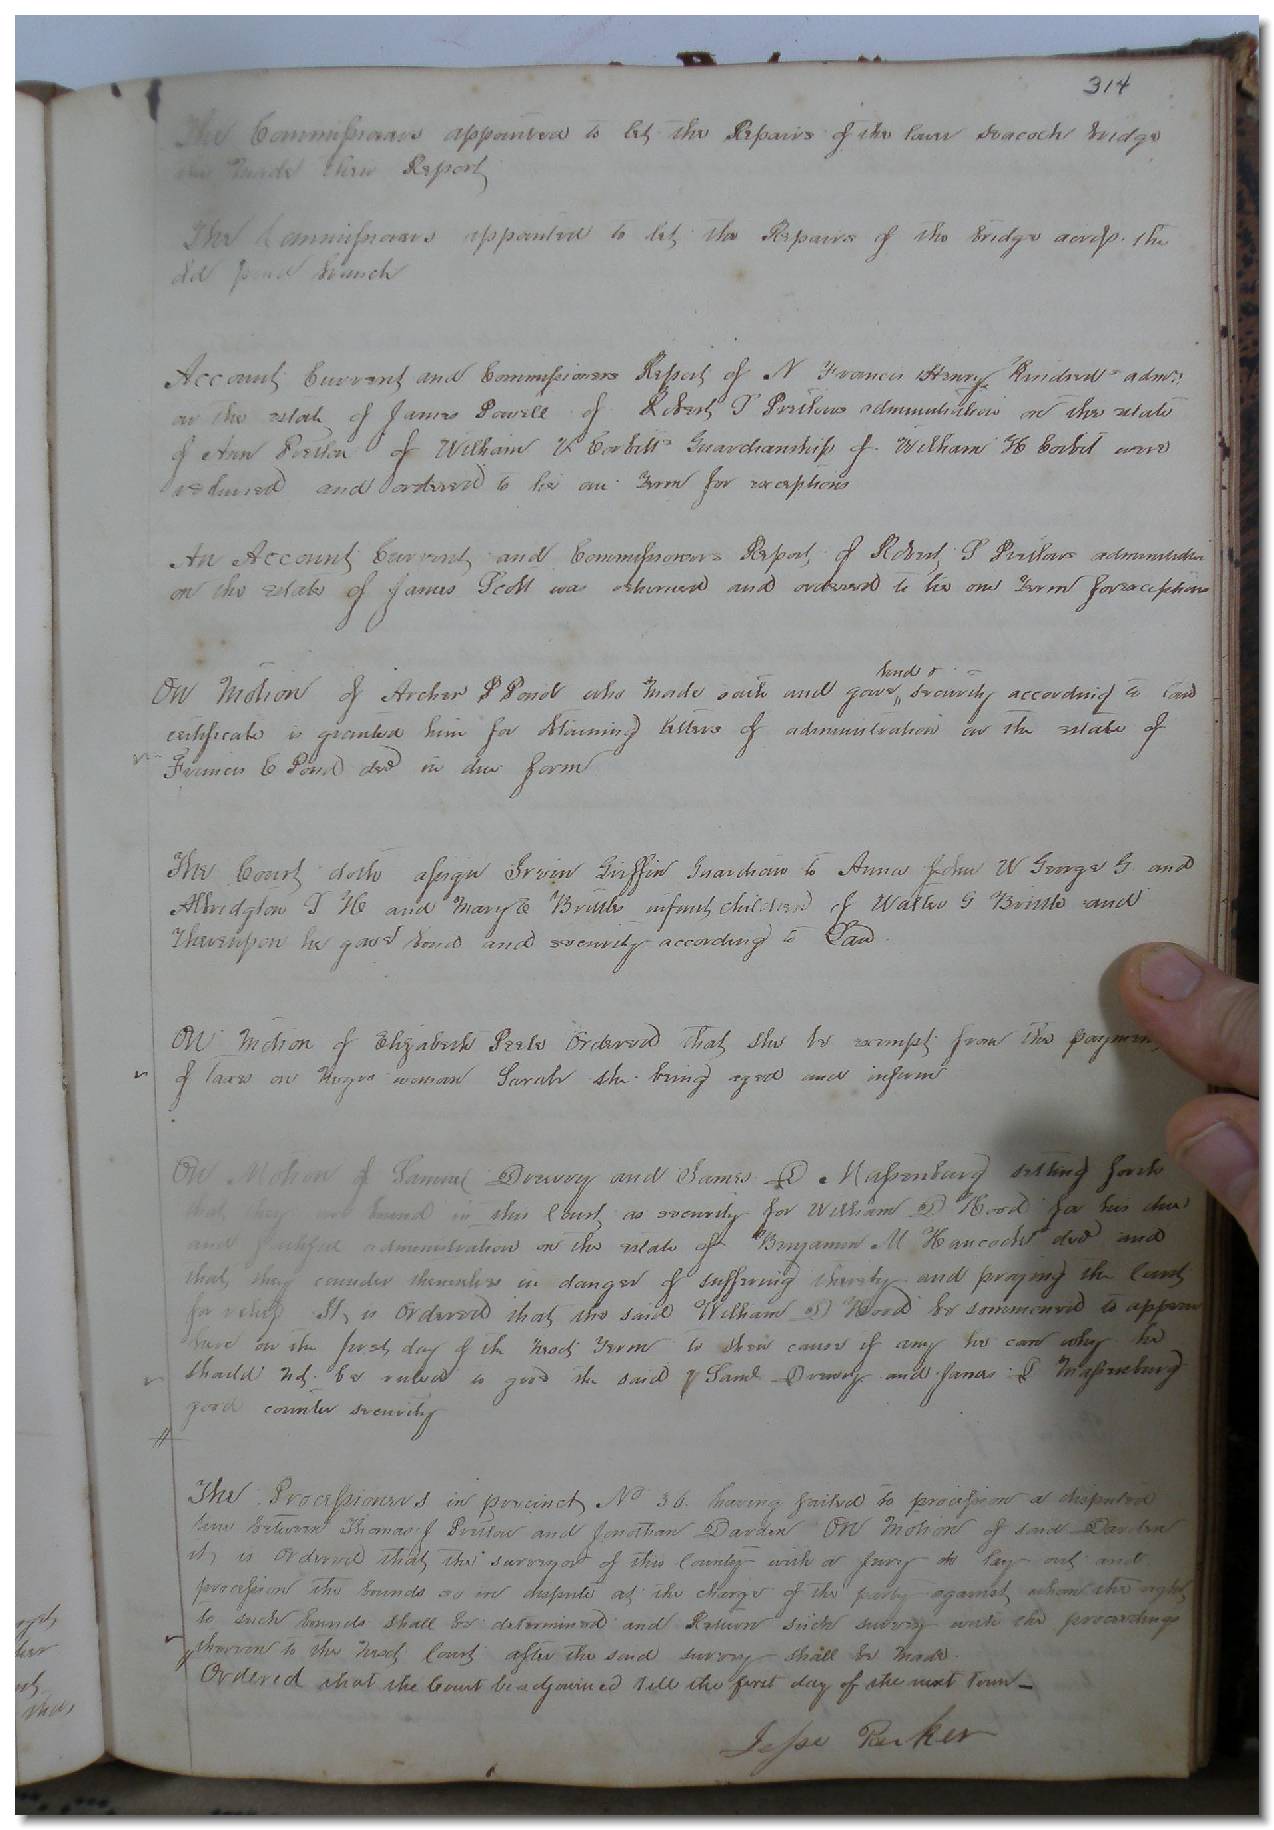 314
The Commissioners appointed to let the Repairs of the lower Seacock bridge
made their Report
The Commissioners appointed to let the Repairs of the bridge across the
old pond branch
Account Current and Commissioners Report of N Francis Henry Kindred admr
on the estate of James Powell of Robert T Pretlow administration on the estate
of Ann Pretlow of William Corbitts Guardianship of William H Corbit were
returned and ordered to lie one Term for exceptions
An Account Current and Commissioners Report of Robert T Pretlows
on the estate of James Scott was returned and ordered to lie one Term for exceptions
bond &
On Motion of Archer P Pond who made oath and gave security according to law
certificate is granted him for obtaining letters of administration on the estate of
Francis E Pond decd in due form
The Court doth assign Irvin Griffin Guardian to Anna John W George G and
Albridgton T H and Mary E Brittle infant children of Walter G Brittle and
Thereupon he gave bond and security according to Law
On Motion of Elizabeth Peele Ordered that she be exempt from the payment
of taxes on Negro woman Sarah she being aged and infirm
On Motion of Samuel Drewry and James D Massenburg setting forth
that they are bound in this Court as security for William D Hood for his due
and faithful administration on the estate of Benjamin M Hancock decd and
that they consider themselves in danger of suffering thereby and praying the Court
for relief It is Ordered that the said William D Hood be sommoned to appear
here on the first day of the next Term to shew cause if any he can why he
should not be ruled to give the said Saml Drewry and James D Massenburg
good counter security
The Processioners in precinct No 36 having failed to procession a disputed
line between Thomas J Pretlow and Jonathan Darden On Motion of said Darden
it is Ordered that the surveyor of this County with a Jury do lay out and
procession the bounds so in dispute at the charge of the party against whom the right
to such bounds shall be determined and Return such survey with the proceedings
thereon to the next Court after the said survey shall be made.
Ordered that the Court be adjourned till the first day of the next Term
Jesse Parker